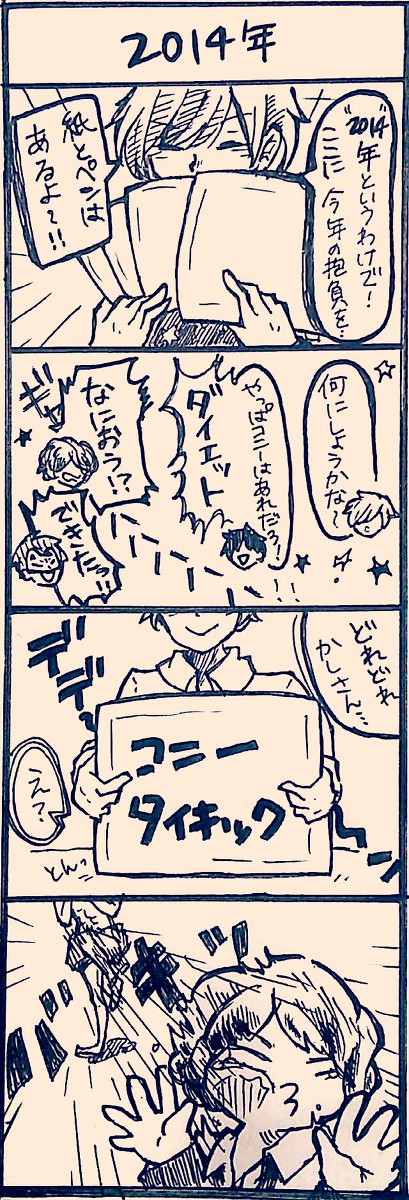 2014年
"2014"
年というわけで!
ここに 今年の抱負を…
紙とペンは
あるよ~!!
何にしようかな~
やっぱコニーはあれだろ!
ダイエット
なにおう!?
ギャー
できたっ!!
!!
どれどれ
かしさん…
デデーーン
コニー
タイキック
え?
とんっ